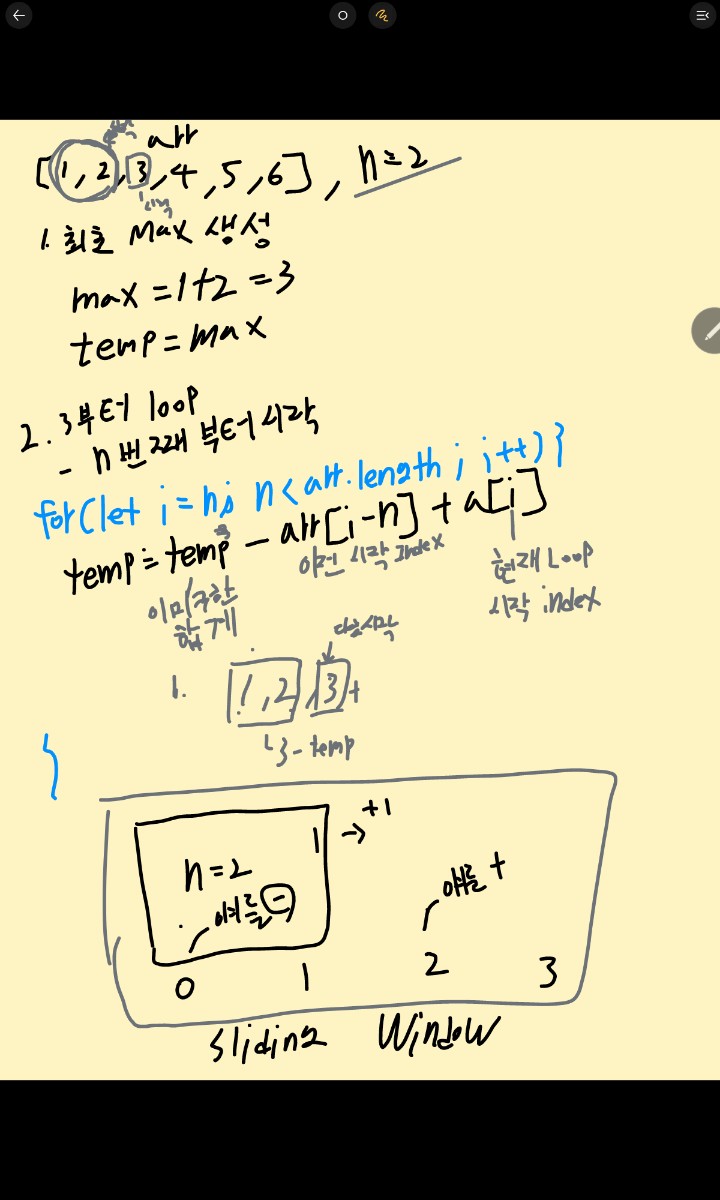 arr
[1, 2, 3, 4, 5, 6], n=2
시작
1. 최초 max 생성
max = 1+2 = 3
temp = max
2. 3부터 loop
- n번째 부터 시작
for(let i = n; n < arr.length ; i++) {
temp = temp - arr[i-n] + a[i]
이미 구한 합계
이전 시작 Index
현재 Loop
시작 index
다음시작
1. 1, 2, 3 +
3 - temp
}
1 → +1
n=2
얘를 -
얘를 +
0 1 2 3
Sliding Window